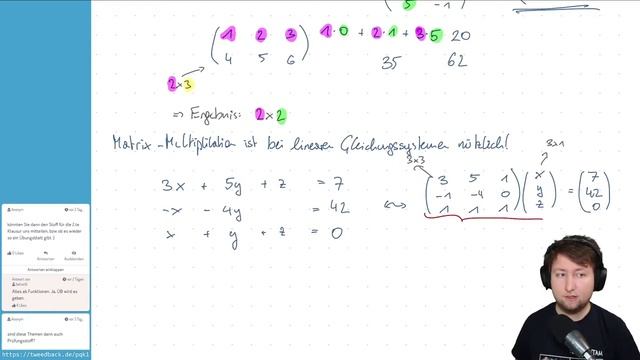 5 -1
( 1 2 3 ) 1·0 + 2·1 + 3·5 20
4 5 6 35 62
2x3
⇒ Ergebnis: 2x2
Matrix-Multiplikation ist bei linearen Gleichungssystemen nützlich!
3x3 3x1
3x + 5y + z = 7 ( 3 5 1 ) ( x ) ( 7 )
-x - 4y = 42 ↔ ( -1 -4 0 ) ( y ) = ( 42 )
x + y + z = 0 ( 1 1 1 ) ( z ) ( 0 )
Anonym vor 2 Tag.
könnten Sie dann den Stoff für die 2.te
Klausur uns mitteilen, bzw ob es wieder
so ein Übungsblatt gibt :)
0 Likes Antworten Ausblenden
Antworten einklappen
Antwort von vor 2 Tagen
Alles ab Funktionen. Ja, ÜB wird es
geben.
4 Likes
Anonym vor 2 Tag.
sind diese Themen dann auch
Prüfungsstoff?
https://tweedback.de/pqk1